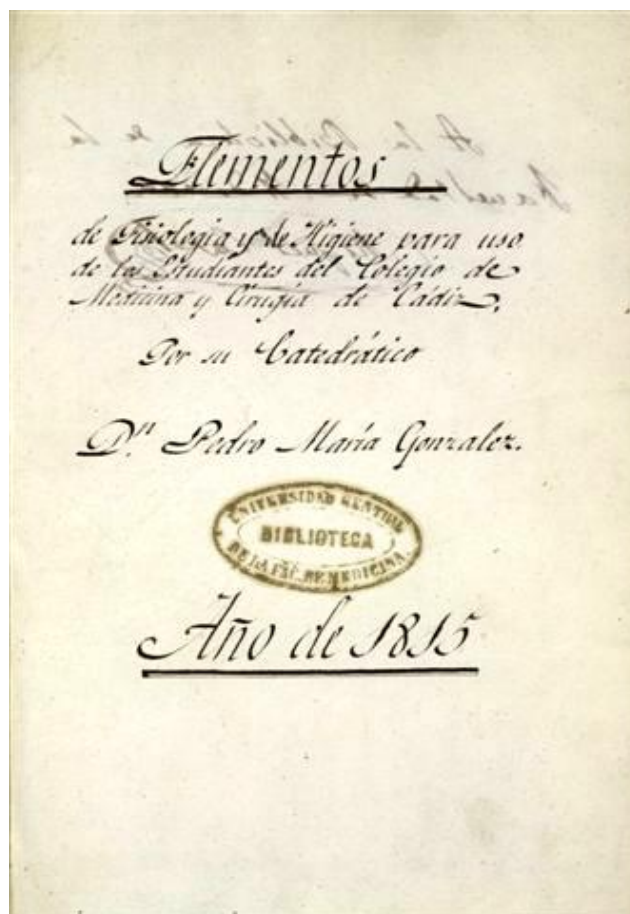 Elementos
de Fisiologia y de Higiene para uso
de los Estudiantes del Colegio de
Medicina y Cirugía de Cádiz,
Por su Catedrático
Dn. Pedro María Gonzalez.
UNIVERSIDAD CENTRAL
BIBLIOTECA
DE LA FAC. DE MEDICINA
Año de 1815